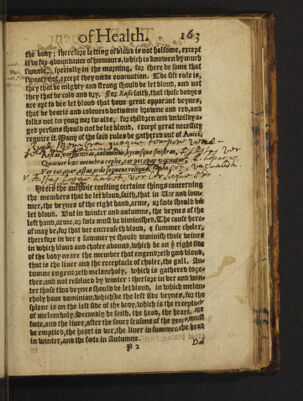 of Health. 163
the body: therefore letting of blood is not holsome, except
it be for aboundance of humours, which is knowen by much
sweate, specially in the morning, for there be some that
sweate not, except they neede euacuation. The first rule is,
they that be mighty and strong should be let blood, and not
they that be cold and dry. For Rasis saith, that those bodyes
are apt to bee let bloud that haue great apparant veynes,
that be hearie and coloured betweene browne and red, and
folks not to yong nor to olde, for children and vnwildy a-
ged persons should not be let bloud, except great necessity
require it. Many of the said rules be gathers out of Auice.
Æstas, ver, dextras, autumnus, hyemsque sinistras.
Quatuor hæc membra cephe, cor pes epar vacuantur.
Ver cor, epar, æstas, ordo sequens reliquas.
Heere the authour reciting certaine things concerning
the members that be let bloud, saith, that in Ver and som-
mer, the veyne of the right hand, arme, or foote should be
let blood. But in winter and autumn, the veynes of the
left hand, arme, or foote must be diminished. The cause here-
of may be, for that ver encreaseth bloud, & summer choler,
therefore in ver & summer ye should diminish those veines
in which blood and choler abound, which be on yͤ right side
of the body neare the member that engendreth good bloud,
that is the liuer and the receptacle of choler, the gall. Au-
tumne engendreth melancholy, which is gathered toge-
ther, and not resolued by winter: therefore in ver and win-
ter those two veynes should be let bloud, in which melan-
choly haue dominion, which be the left side veynes, for the
splene is on the left side of the body, which is the receptacle
of melancholy. Secondly he saith, the head, the heart, the
foote, and the liuer, after the foure seasons of the yeere, must
be emptied, the heart in ver, the liuer in summer, the head
in winter, and the foote in Autumne.
P 2